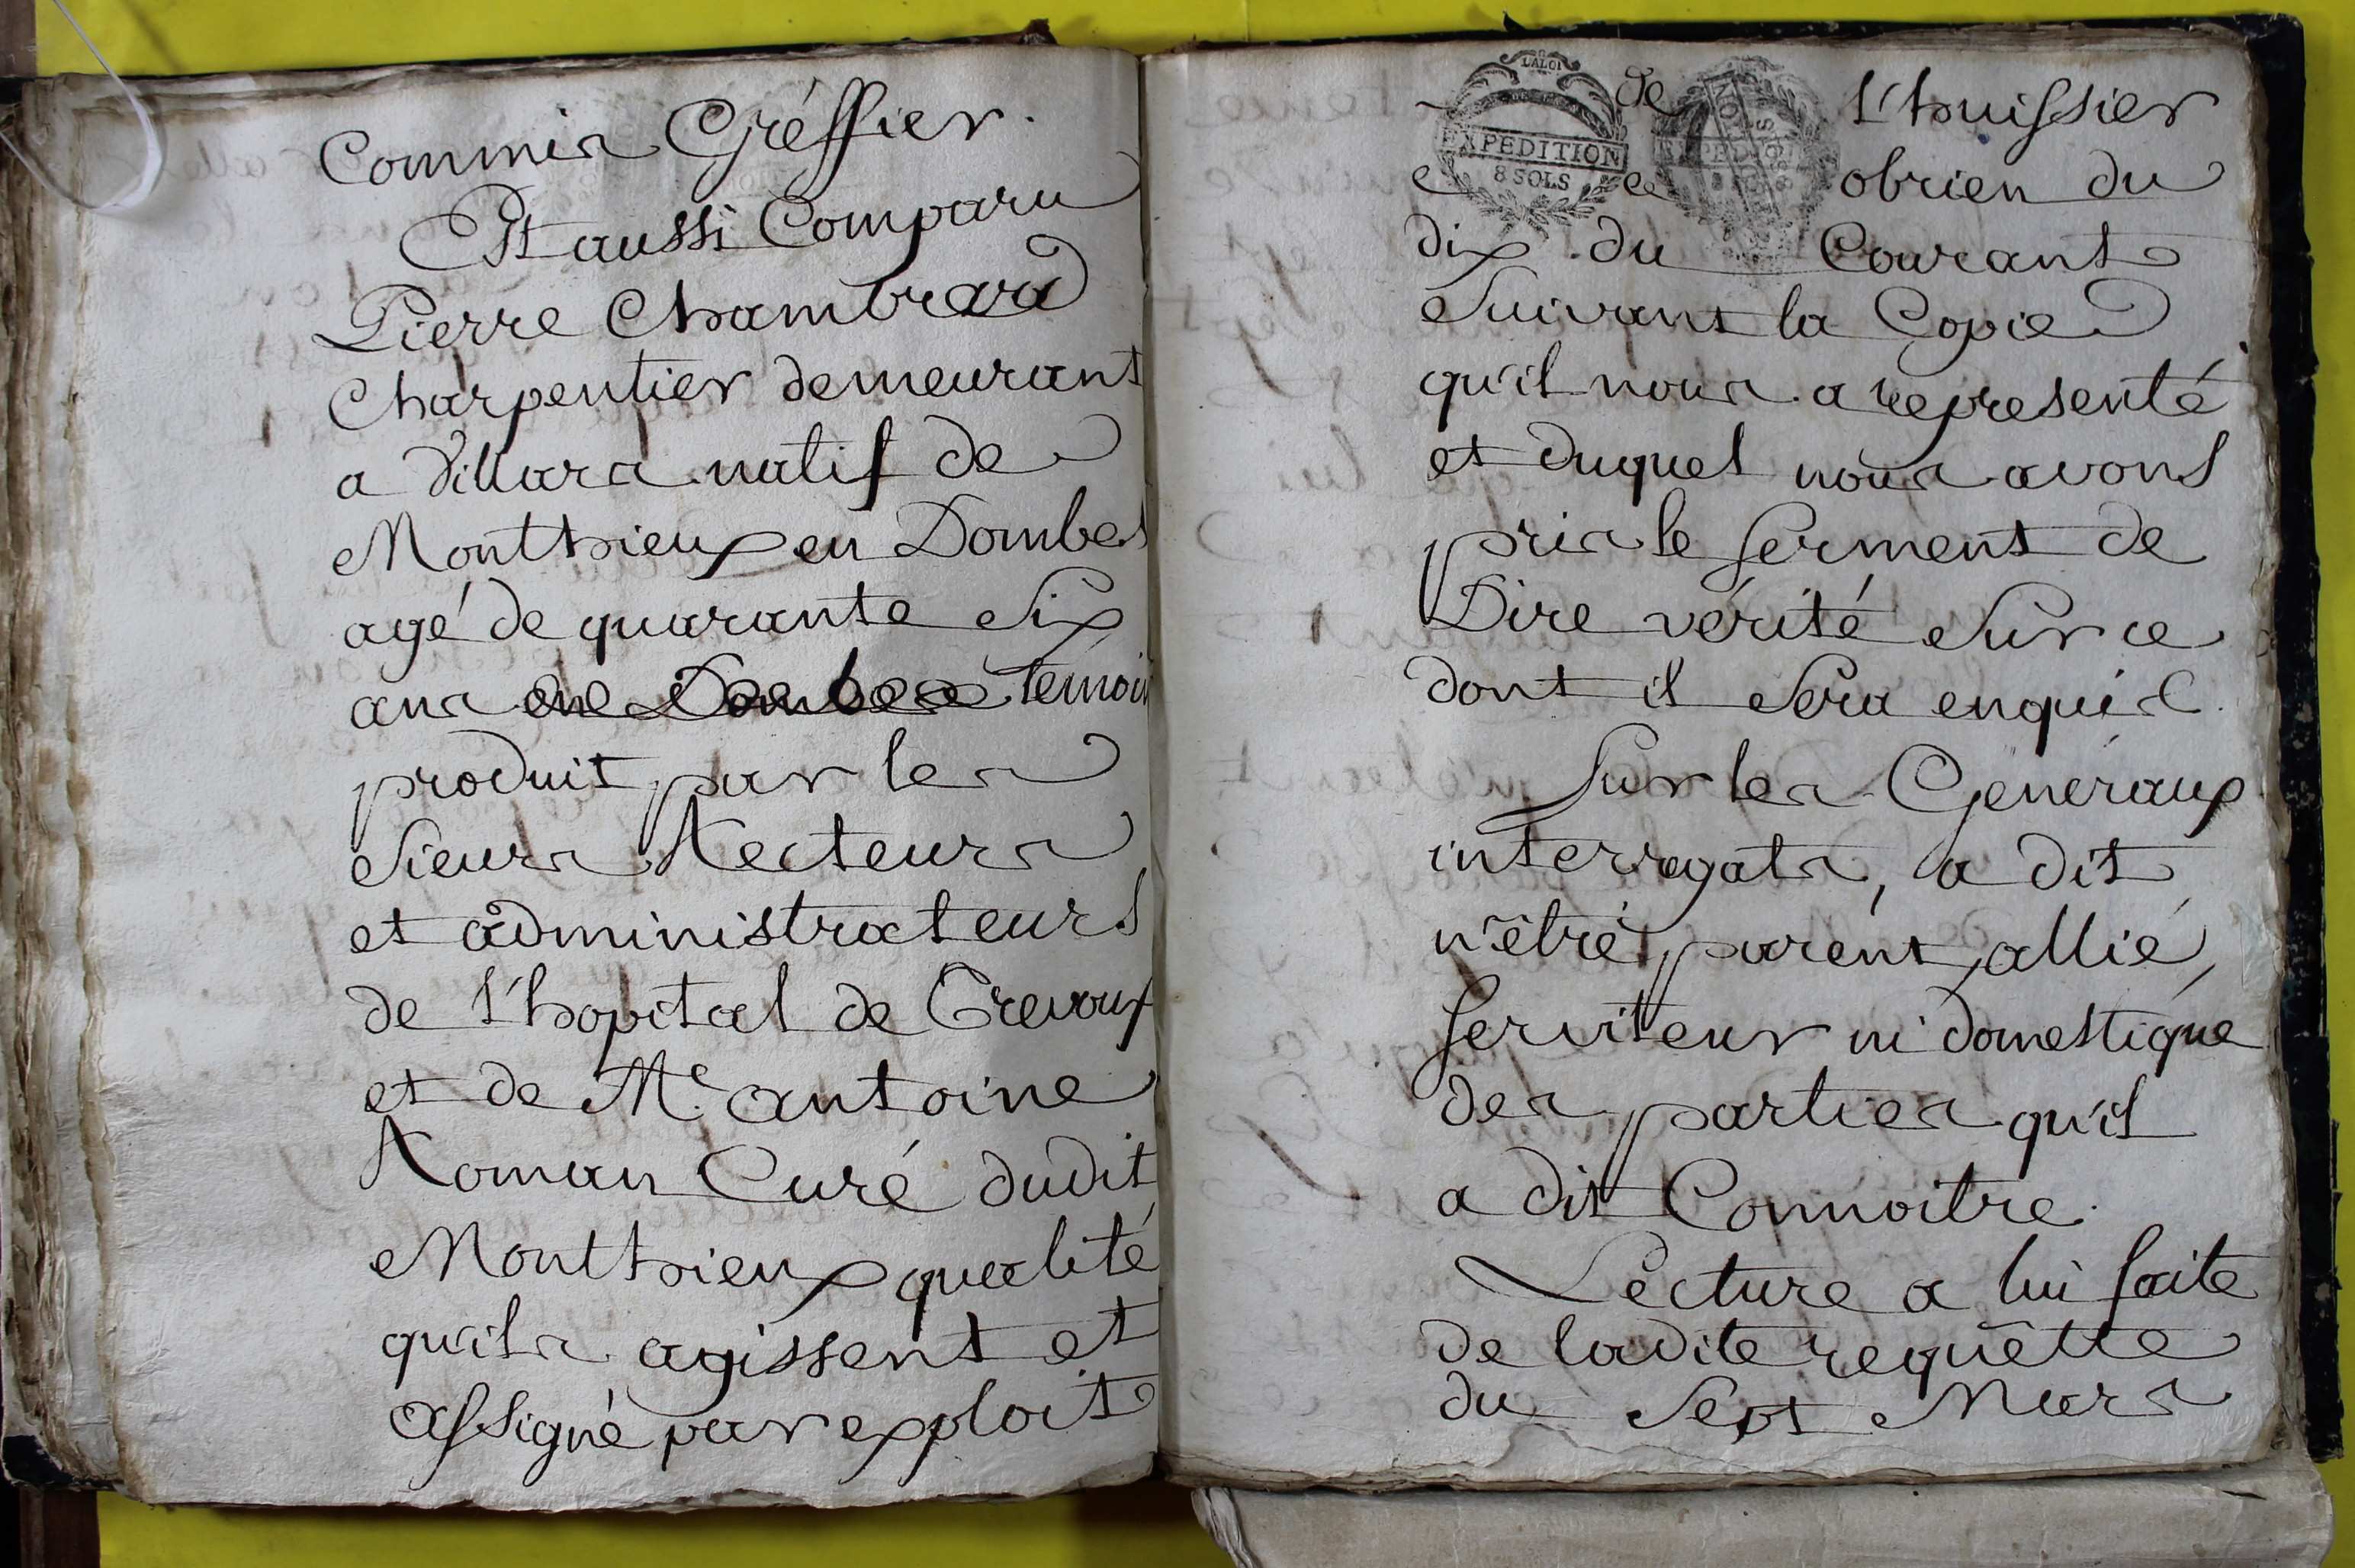 Commis Gréffier.
Est aussi Comparu
Pierre Chambrard
Charpentier demeurant
a Villars natif de
Monthieux en Dombes
agé de quarante Six
ans en Dombes temoin
produit par les
Sieurs Recteurs
et administrateurs
de l'hopital de Trevoux
et de Me antoine
Roman Curé dudit
Monthieux qualité
qu'ils agissent et
assigné par exploit
LALOI
EXPEDITION
8 SOLS
de l'huissier
obrien du
dix du Courant
Suivant la Copie
qu'il nous a representé
et duquel nous avons
pris le serment de
Dire vérité Sur ce
dont il Séra enquis.
Sur les Généraux
interrogats, a dit
n'être parent, allié,
serviteur ni domestique
des parties qu'il
a dit Connoitre.
Lecture a lui faite
de ladite requêtte
du Sept Mars